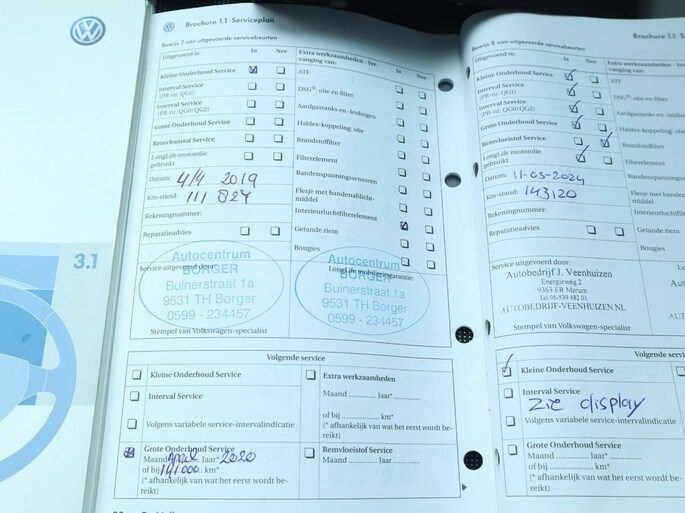 Brochure 1.1 Serviceplan
Bewijs 7 van uitgevoerde servicebeurten
Uitgevoerd is: Ja Nee
Kleine Onderhoud Service
Interval Service
(PR-nr. QG1)
Interval Service
(PR-nr. QG0/QG2)
Grote Onderhoud Service
Remvloeistof Service
LongLife motorolie
gebruikt
Datum: 4/4 2019
Km-stand: 111 827
Rekeningnummer:
Reparatieadvies
Extra werkzaamheden - Ver-
vanging van: Ja Nee
ATF
DSG®: olie en filter
Aardgastanks en -leidingen
Haldex-koppeling: olie
Brandstoffilter
Filterelement
Bandenspanningsensoren
Flesje met bandenafdicht-
middel
Interieurluchtfilterelement
Getande riem
Bougies
Service uitgevoerd door:
Autocentrum
BORGER
Buinerstraat 1a
9531 TH Borger
0599 - 234457
LongLife mobiliteitsgarantie:
Autocentrum
BORGER
Buinerstraat 1a
9531 TH Borger
0599 - 234457
Stempel van Volkswagen-specialist
Volgende service
Kleine Onderhoud Service
Interval Service
Volgens variabele service-intervalindicatie
Grote Onderhoud Service
Maand April Jaar* 2020
of bij 141.000 km*
(* afhankelijk van wat het eerst wordt be-
reikt)
Extra werkzaamheden
Maand Jaar*
of bij km*
(* afhankelijk van wat het eerst wordt be-
reikt)
Remvloeistof Service
Maand Jaar
Bewijs 8 van uitgevoerde servicebeurten
Uitgevoerd is: Ja Nee
Kleine Onderhoud Service
Interval Service
(PR-nr. QG1)
Interval Service
(PR-nr. QG0/QG2)
Grote Onderhoud Service
Remvloeistof Service
LongLife motorolie
gebruikt
Datum: 11-03-2024
Km-stand: 143120
Rekeningnummer:
Reparatieadvies
Brochure 1.1 S
Extra werkzaamheden - Ver-
vanging van:
ATF
DSG®: olie en filter
Aardgastanks en -leidinge
Haldex-koppeling: olie
Brandstoffilter
Filterelement
Bandenspanningsens
Flesje met bandena
middel
Interieurluchtfilter
Getande riem
Bougies
Service uitgevoerd door:
Autobedrijf J. Veenhuizen
Energieweg 2
9363 ER Marum
Tel 06-539 482 01
AUTOBEDRIJF-VEENHUIZEN.NL
Stempel van Volkswagen-specialist
Volgende servi
Kleine Onderhoud Service
Interval Service
Zie display
Volgens variabele service-intervalindicatie
Grote Onderhoud Service
Maand Jaar*
of bij km*
(* afhankelijk van wat het eerst wordt be-
reikt)
Extra werkz
Maand
of bij
(* afhankeli
reikt)
Remvloe
Maand
3.1